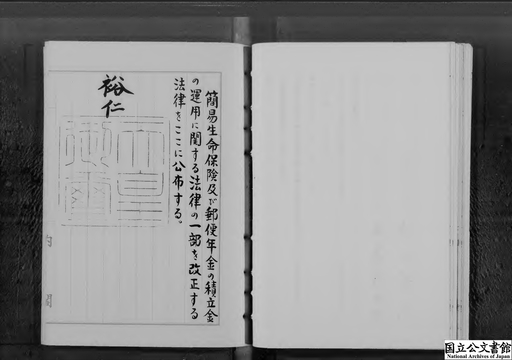 簡易生命保険及び郵便年金の積立金
の運用に関する法律の一部を改正する
法律をここに公布する。
裕仁
天皇
御璽
内閣
国立公文書館
National Archives of Japan